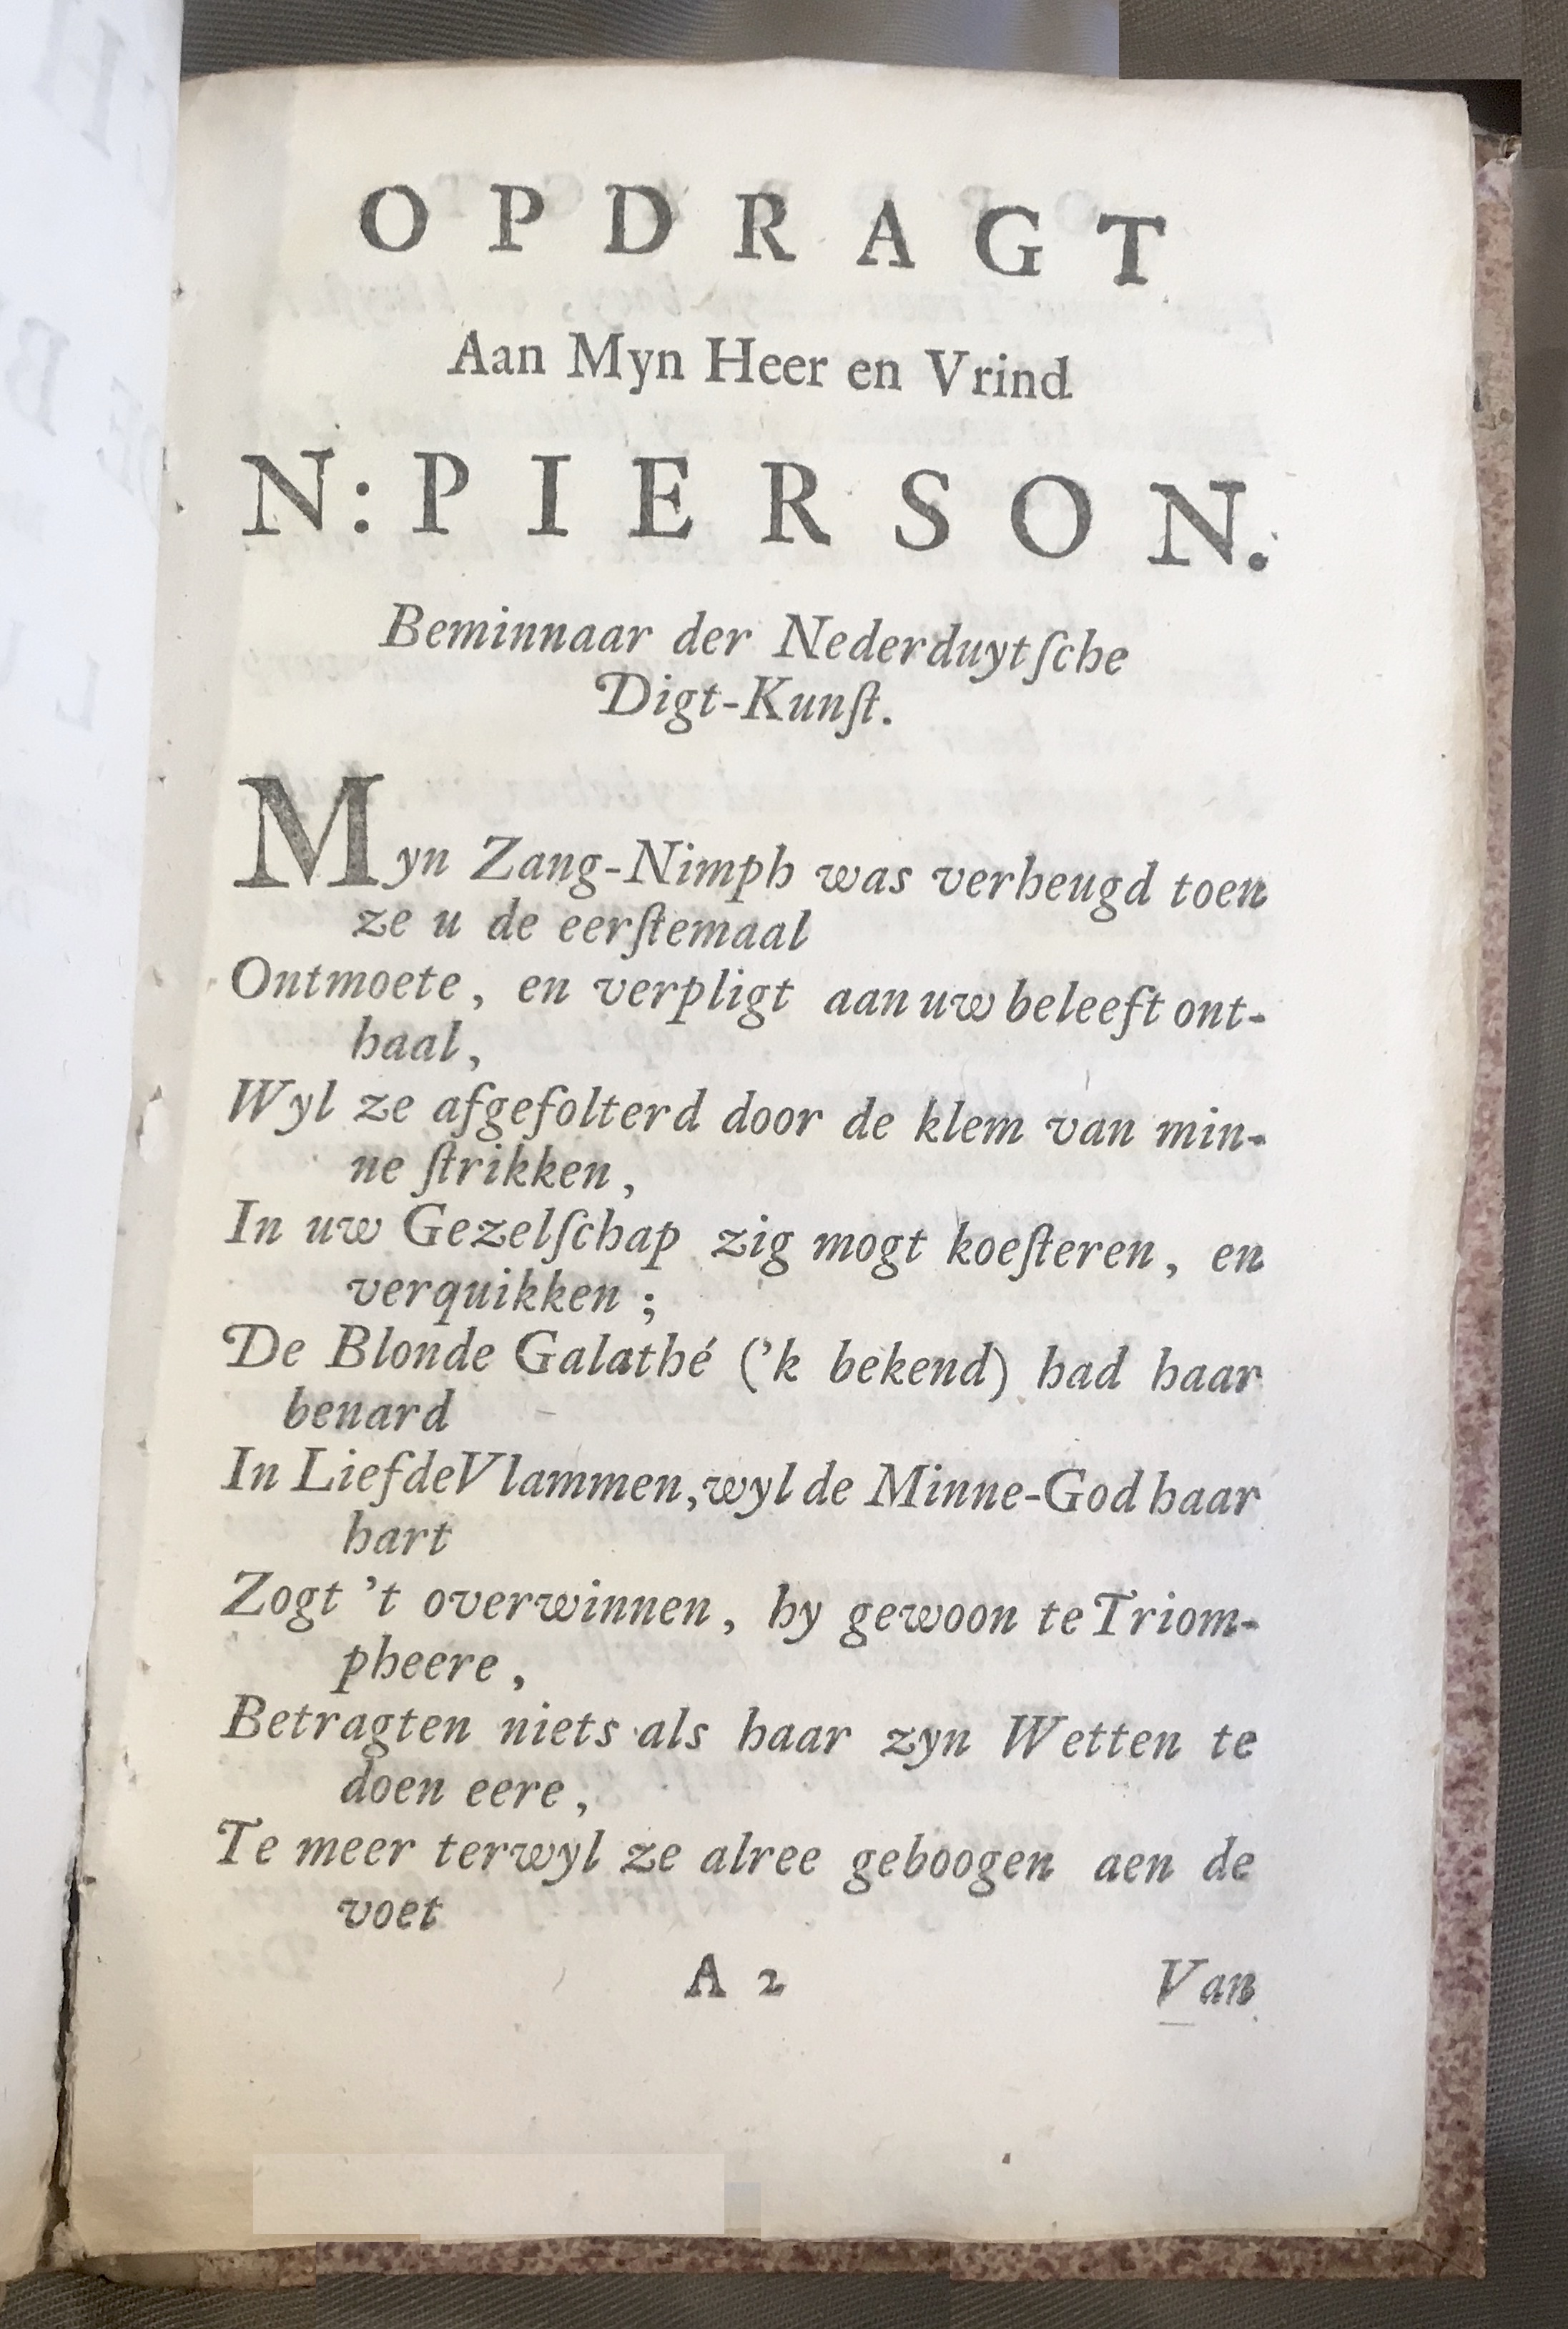 OPDRAGT
Aan Myn Heer en Vrind
N: PIERSON.
Beminnaar der Nederduytſche
Digt-Kunſt.
Myn Zang-Nimph was verheugd toen
ze u de eerſtemaal
Ontmoete, en verpligt aan uw beleeft ont-
haal,
Wyl ze afgefolterd door de klem van min-
ne ſtrikken,
In uw Gezelſchap zig mogt koeſteren, en
verquikken;
De Blonde Galathé ('k bekend) had haar
benard
In LiefdeVlammen, wyl de Minne-God haar
hart
Zogt 't overwinnen, hy gewoon te Triom-
pheere,
Betragten niets als haar zyn Wetten te
doen eere,
Te meer terwyl ze alree geboogen aen de
voet
A 2 Van